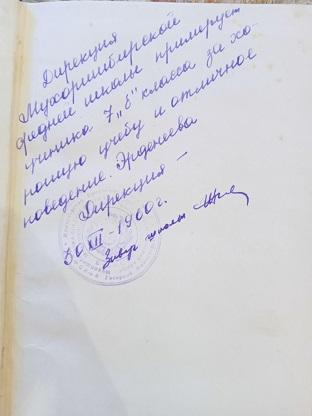 Дирекция
Мухоршибирской
средней школы примерует
ученика 7 „б" класса за хо-
рошую учебу и отличное
поведение. Эрденеева
Дирекция –
30 XII – 1960 г.
Завуч школы